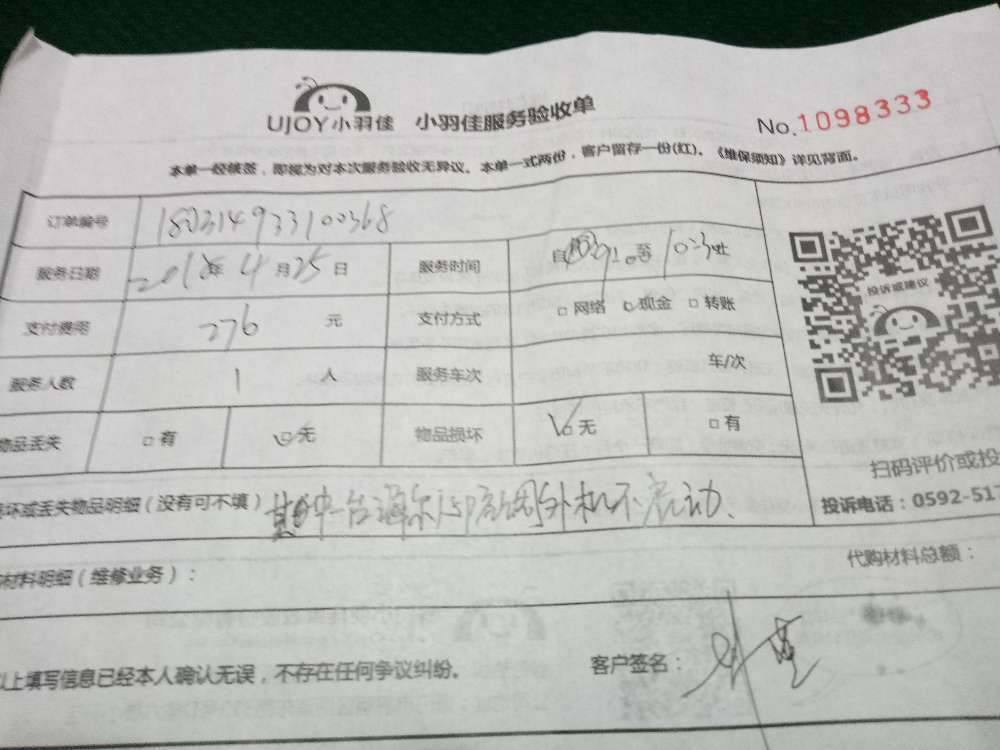 UJOY小羽佳 小羽佳服务验收单
No.1098333
本单一经核签，即视为对本次服务验收无异议。本单一式两份，客户留存一份(红)。《维保须知》详见背面。
订单编号 180314933100368
服务日期 2018年4月25日 服务时间 自 至
支付费用 276 元 支付方式 □网络 □现金 □转账
服务人数 1 人 服务车次 车/次
投诉或建议
物品丢失 □有 □无 物品损坏 □无 □有
扫码评价或投
坏或丢失物品明细（没有可不填） 其中一台 外机不启动
投诉电话：0592-51
材料明细（维修业务）： 代购材料总额：
以上填写信息已经本人确认无误，不存在任何争议纠纷。 客户签名：